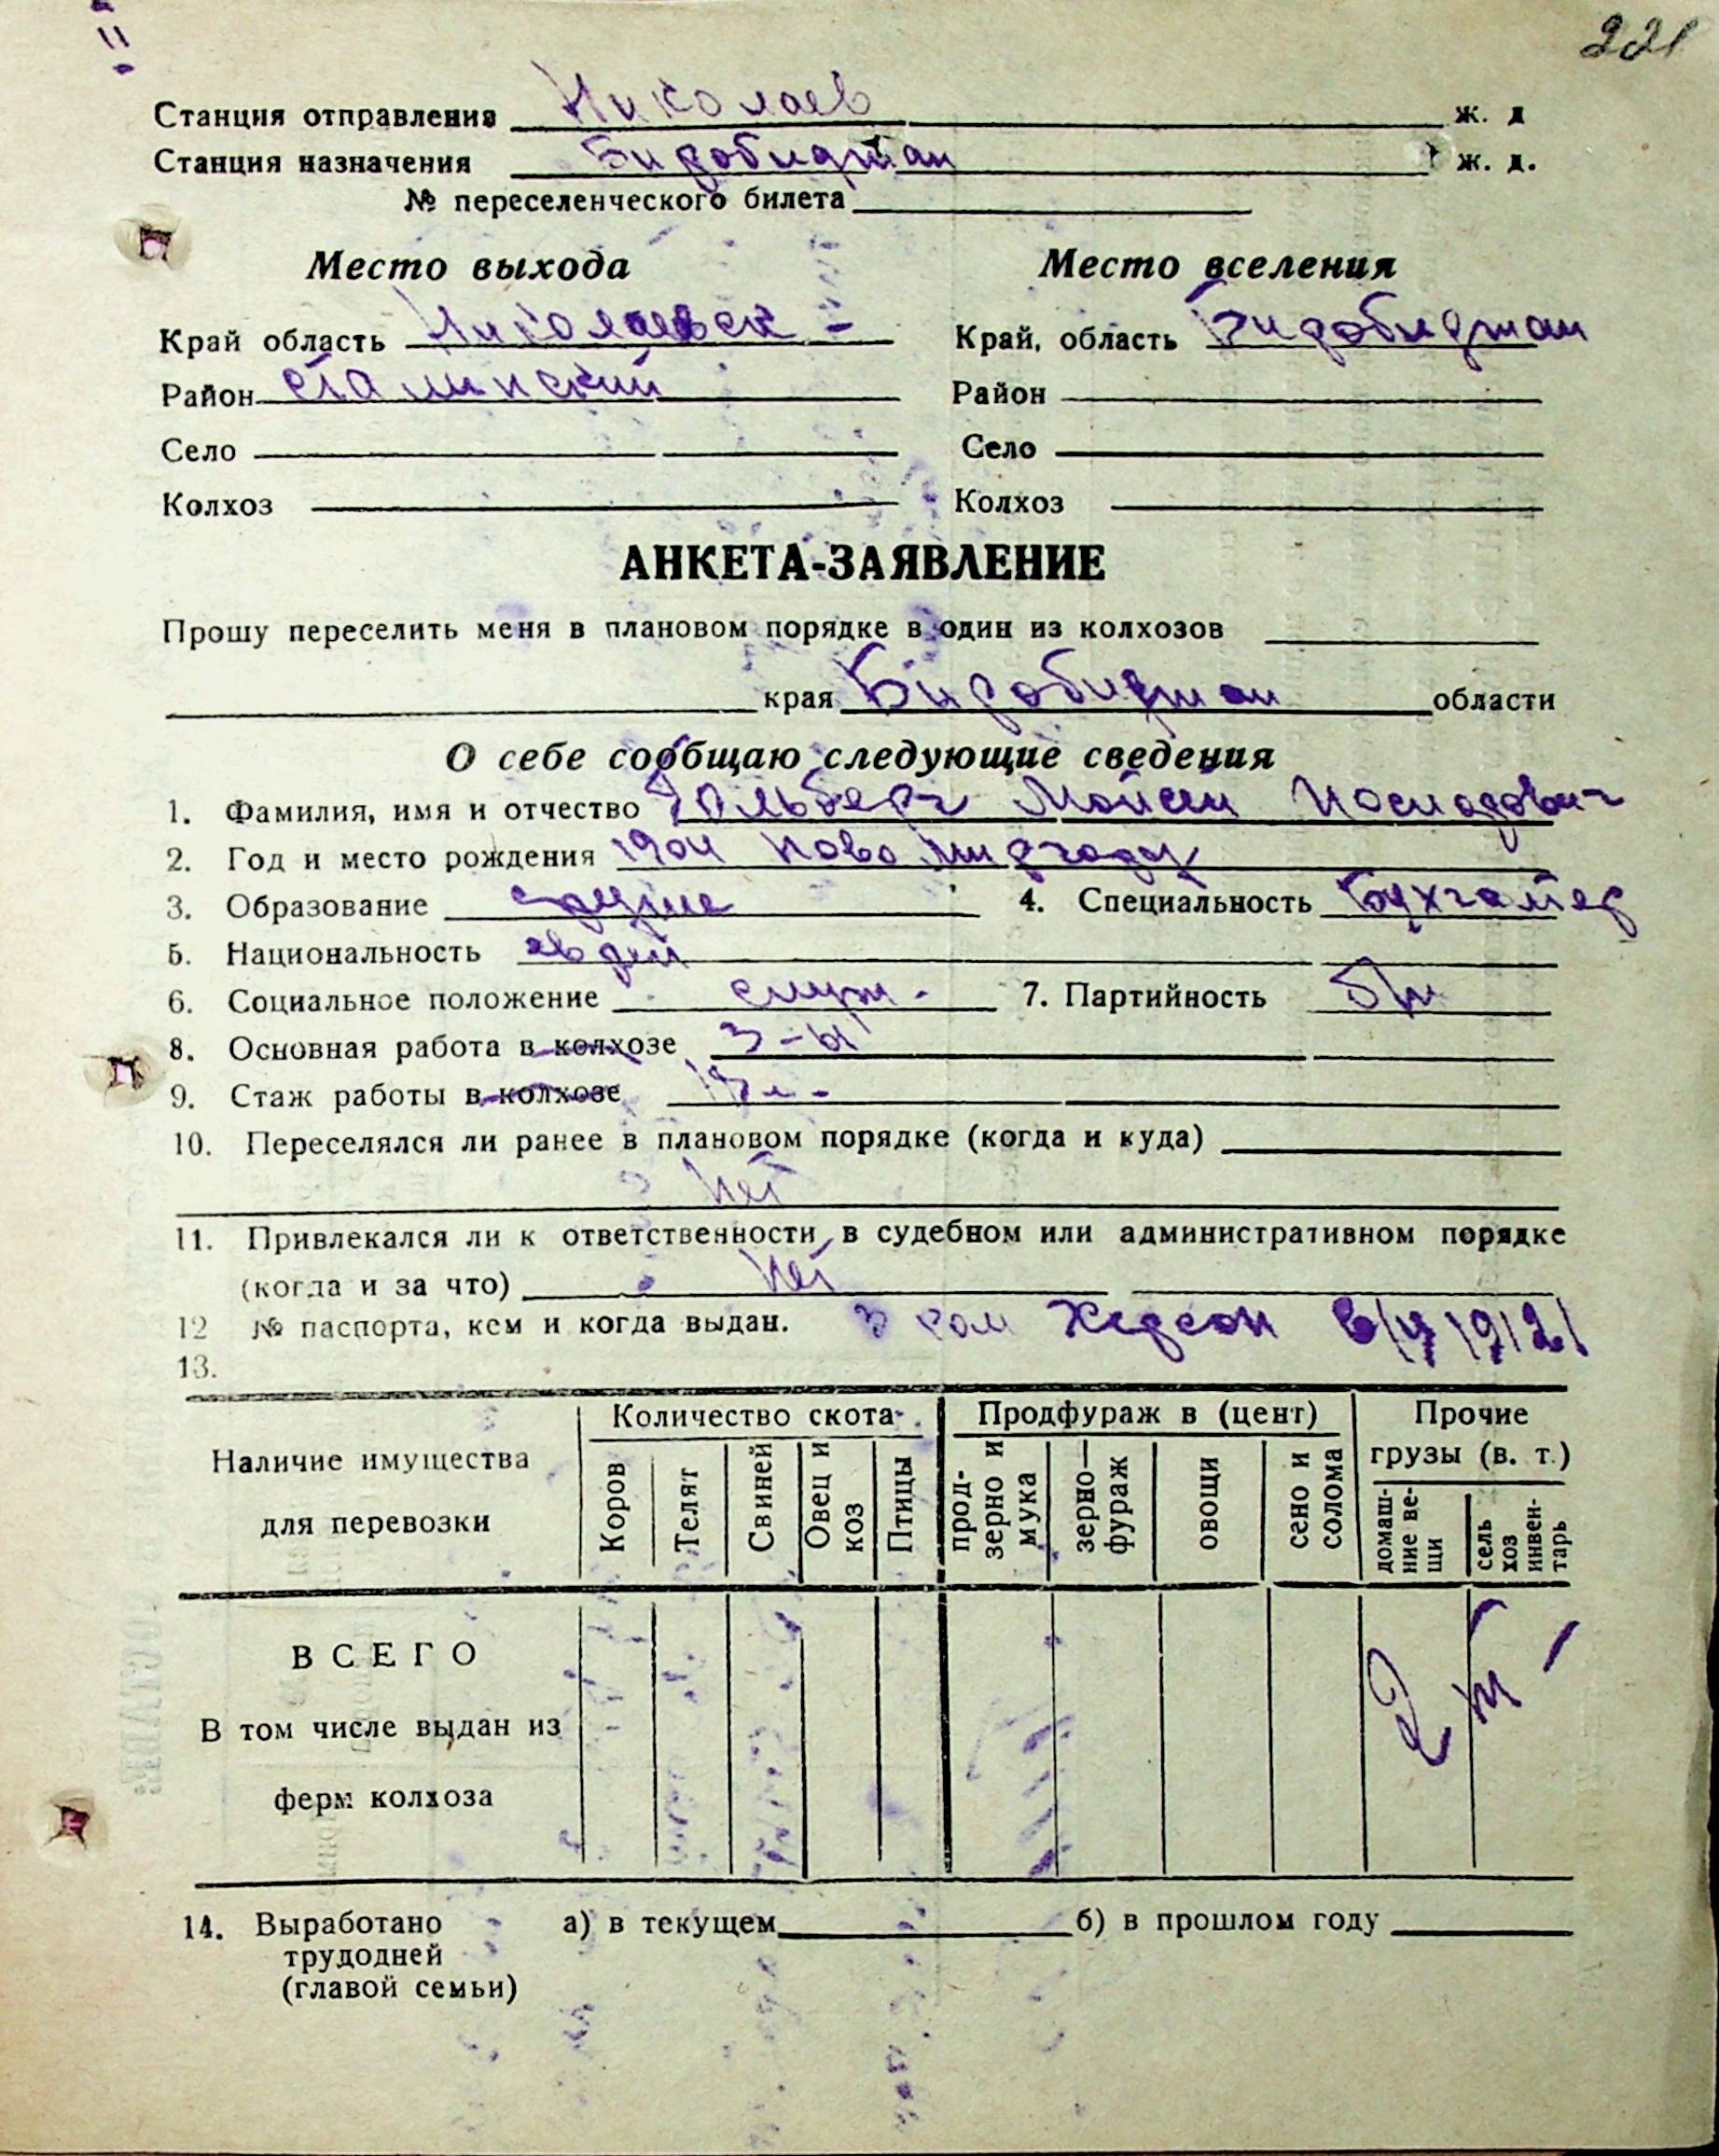 221
Станция отправления Николаев ж. д
Станция назначения Биробиджан ж. д.
№ переселенческого билета
Место выхода Место вселения
Край область Николаевск - Край, область Биробиджан
Район Сталинский Район
Село Село
Колхоз Колхоз
АНКЕТА-ЗАЯВЛЕНИЕ
Прошу переселить меня в плановом порядке в один из колхозов
края Биробиджан области
О себе сообщаю следующие сведения
1. Фамилия, имя и отчество Гольберг Мойсей
2. Год и место рождения 1904 Ново Миргород
3. Образование среднее 4. Специальность бухгалтер
5. Национальность еврей
6. Социальное положение служ. 7. Партийность б/п
8. Основная работа в колхозе
9. Стаж работы в колхозе
10. Переселялся ли ранее в плановом порядке (когда и куда)
нет
11. Привлекался ли к ответственности в судебном или административном порядке
(когда и за что) нет
12 № паспорта, кем и когда выдан. Херсон
13.
Наличие имущества для перевозки
Количество скота Продфураж в (цент) Прочие грузы (в. т.)
Коров Телят Свиней Овец и коз Птицы прод-зерно и мука зерно—фураж овощи сено и солома домаш-ние ве-щи сель хоз инвен-тарь
ВСЕГО
2 т -
В том числе выдан из
ферм колхоза
14. Выработано а) в текущем б) в прошлом году
трудодней
(главой семьи)